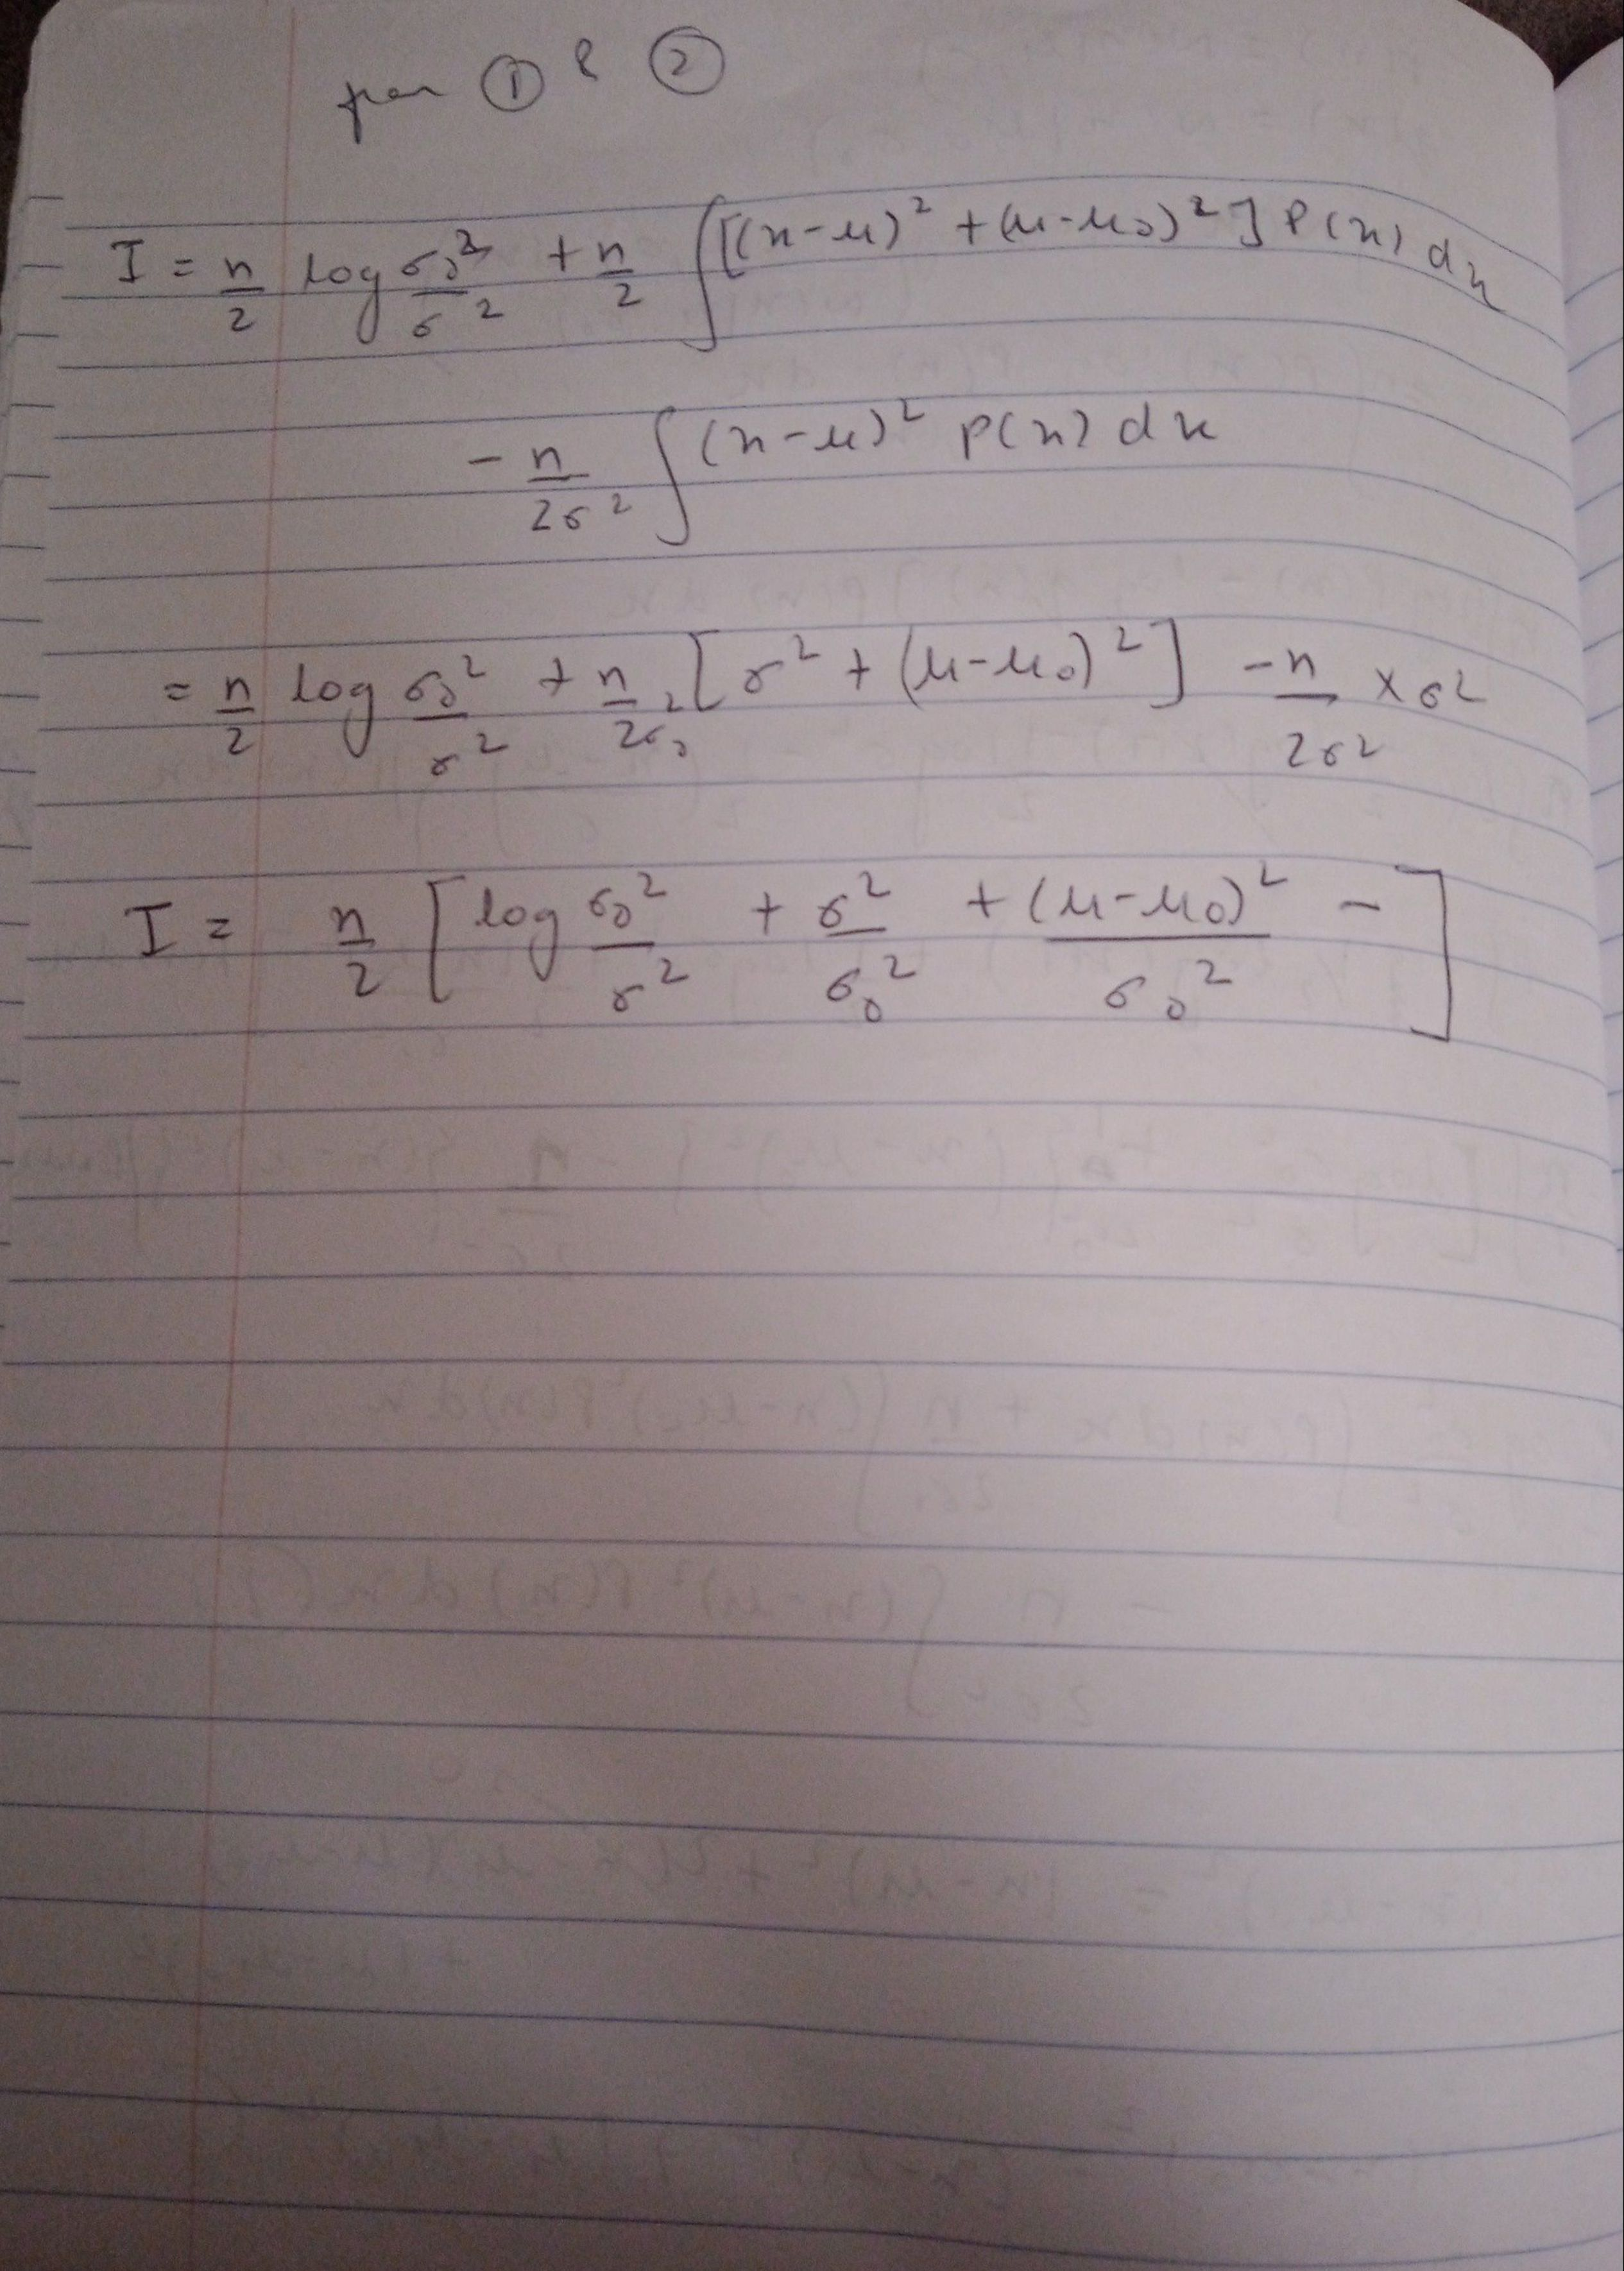 from ① & ②
I = n/2 log σ₀²/σ² + n/2 ∫[(x-μ)² + (μ-μ₀)²] P(x) dx
- n/2σ² ∫(x-μ)² P(x) dx
= n/2 log σ₀²/σ² + n/2σ₀² [σ² + (μ-μ₀)²] - n/2σ² × σ²
I = n/2 [log σ₀²/σ² + σ²/σ₀² + (μ-μ₀)²/σ₀² - ]